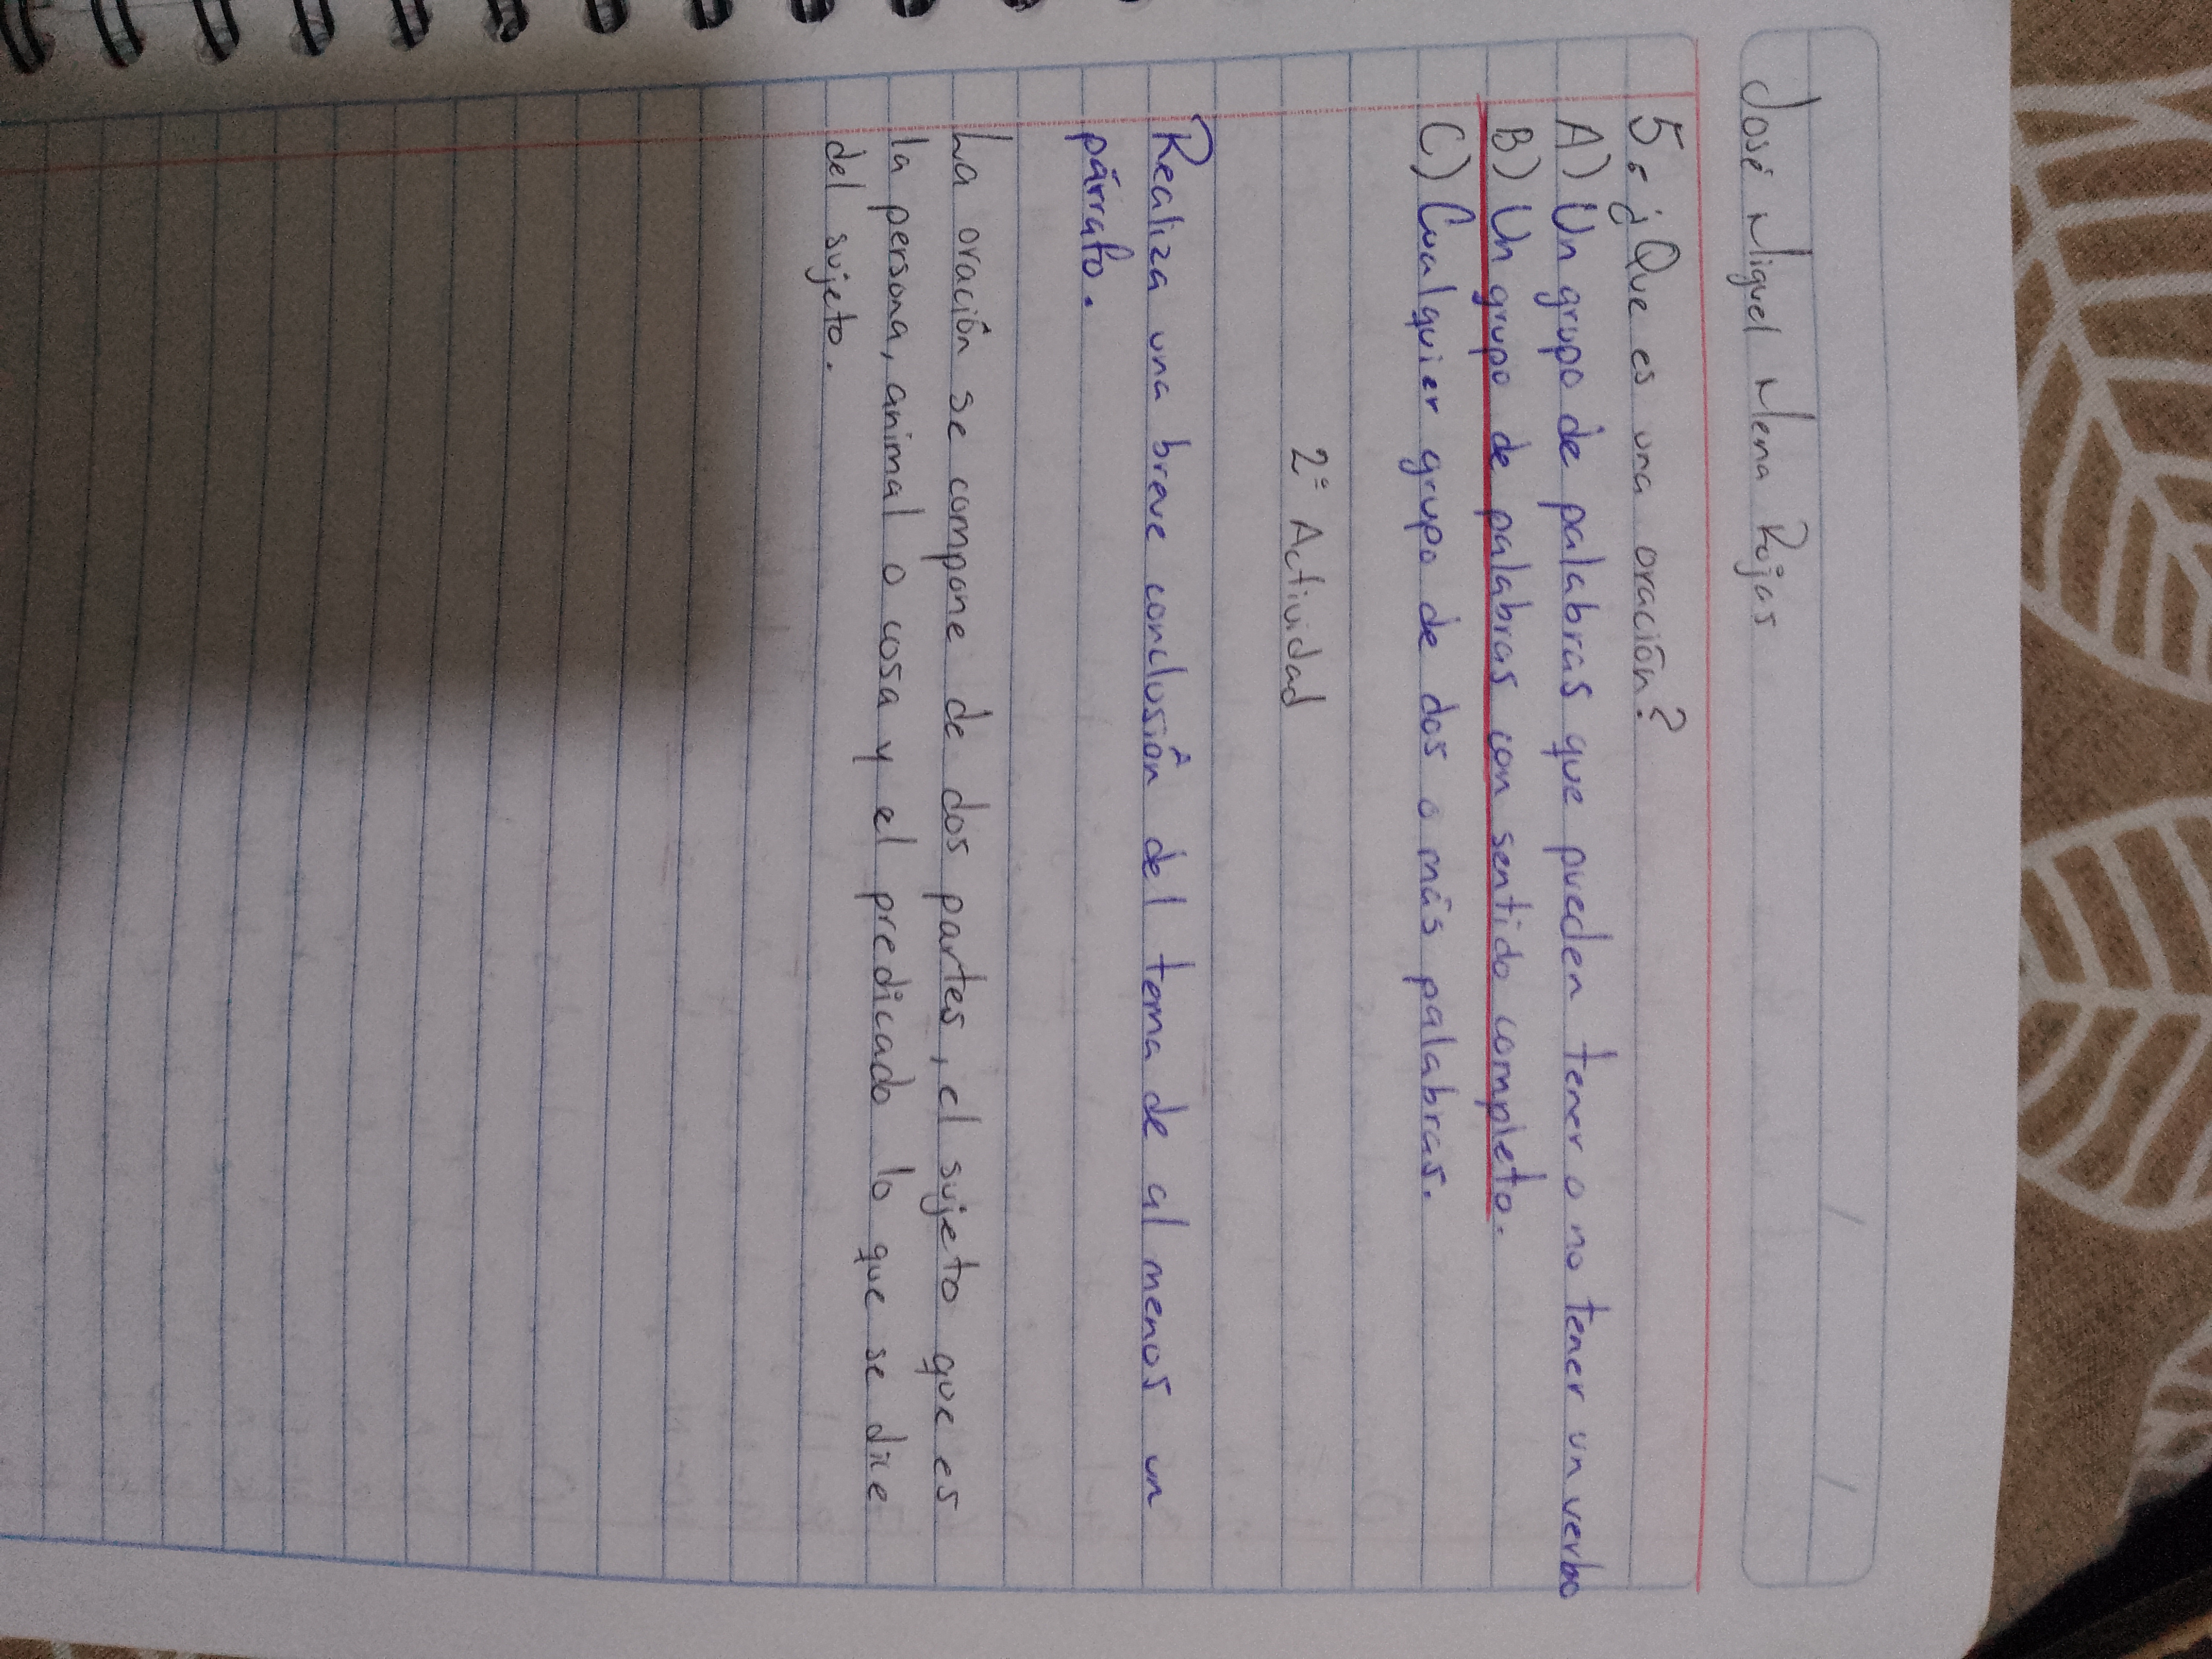 José Miguel Mena Rojas
5.¿Que es una oración?
A) Un grupo de palabras que pueden tener o no tener un verbo
B) Un grupo de palabras con sentido completo.
C) Cualquier grupo de dos o más palabras.
2º Actividad
Realiza una breve conclusión del tema de al menos un
párrafo.
La oración se compone de dos partes, el sujeto que es
la persona, animal o cosa y el predicado lo que se dice
del sujeto.